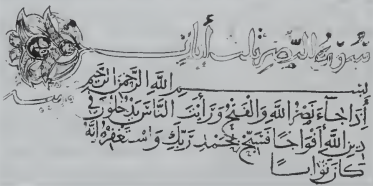 سورة النصر ثلث أيات
بسم الله الرحمن الرحيم
إذا جاء نصر الله والفتح ورأيت الناس يدخلون في
دين الله أفواجا فسبح بحمد ربك واستغفره إنه
كان توابا